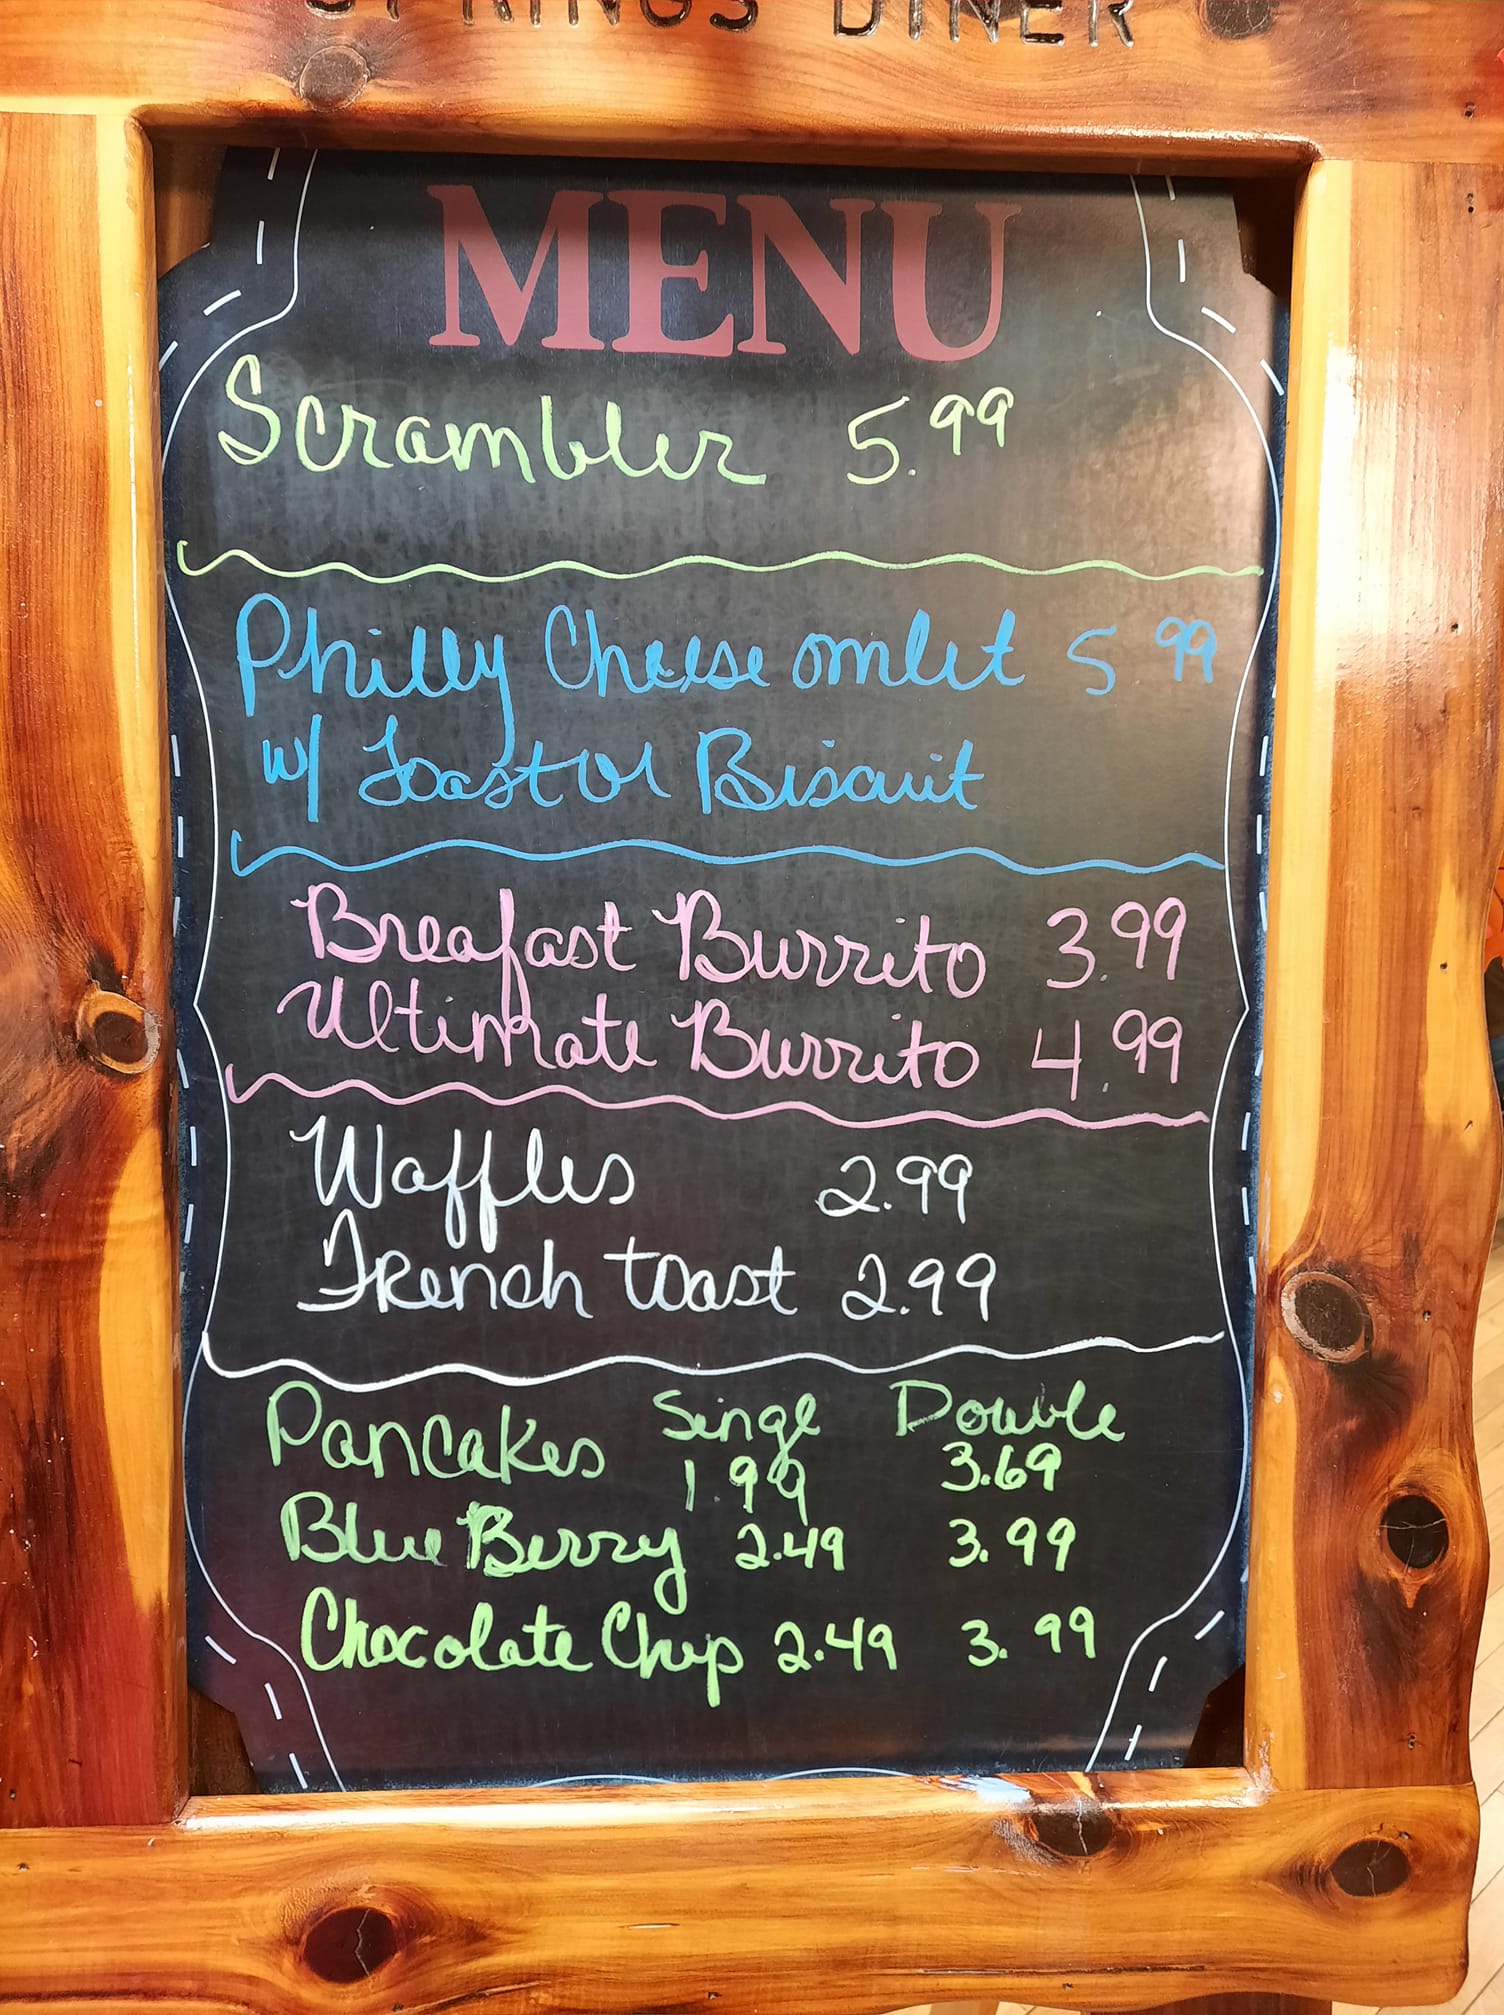 SPRINGS DINER
MENU
Scrambler 5.99
Philly Cheese omlet 5 99
w/ Toast or Biscuit
Breafast Burrito 3.99
Ultimate Burrito 4.99
Waffles 2.99
French toast 2.99
Pancakes Singe Double
1.99 3.69
Blue Berry 2.49 3.99
Chocolate Chip 2.49 3.99